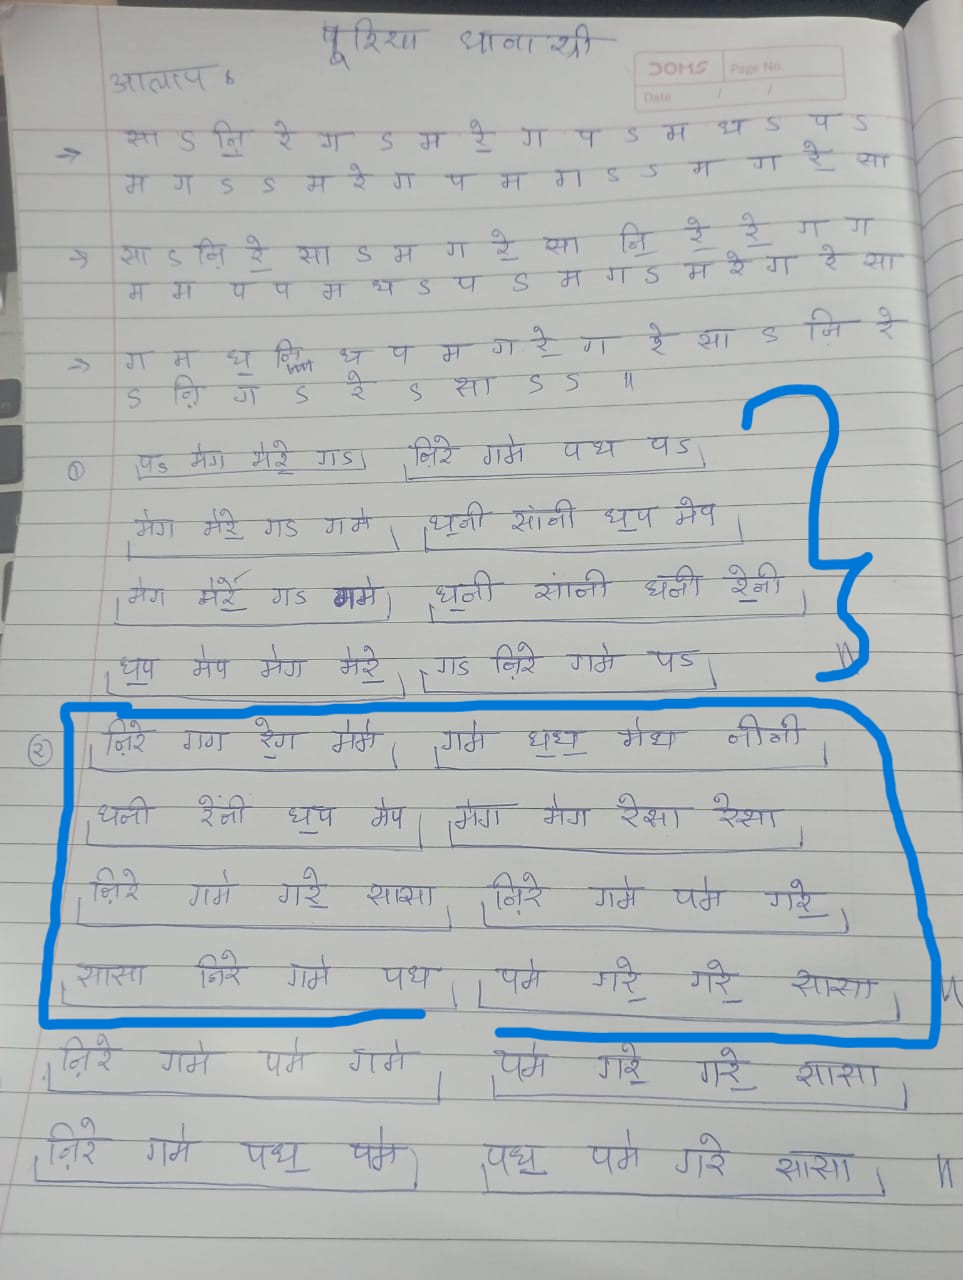 पूरिया धानाश्री
DOMS Page No.
Date / /
आलाप
→ सा ऽ ऩि रे ग ऽ म रे॒ ग प ऽ म ध ऽ प ऽ
म ग ऽ ऽ म रे ग प म ग ऽ ऽ म ग रे॒ सा
→ सा ऽ ऩि रे॒ सा ऽ म ग रे॒ सा ऩि रे॒ रे॒ ग ग
म म प प म ध ऽ प ऽ म ग ऽ म रे ग रे सा
→ ग म ध॒ नि ध प म ग रे॒ ग रे सा ऽ ऩि रे
ऽ ऩि ग ऽ रे ऽ सा ऽ ऽ ॥
① पऽ मेग मेरे॒ गऽ ऩिरे गमे पध पऽ
मेग मेरे॒ गऽ गमे ध॒नी सांनी ध॒प मेप
मेग मेरे॒ गऽ गमे ध॒नी सांनी धनी रे॒नी
ध॒प मेप मेग मेरे॒ गऽ ऩिरे गमे पऽ ॥
② ऩिरे गग रे॒ग मेमे गमे ध॒ध॒ मेध नीनी
धनी रेंनी ध॒प मेप मेग मेग रेसा रेसा
ऩिरे गमे गरे॒ सासा ऩिरे गमे पमे गरे॒
सासा निरे गमे पध पमे गरे॒ गरे॒ सासा ॥
ऩिरे गमे पमे गमे पमे गरे॒ गरे॒ सासा
ऩिरे गमे पध॒ पमे पध॒ पमे गरे सासा ॥